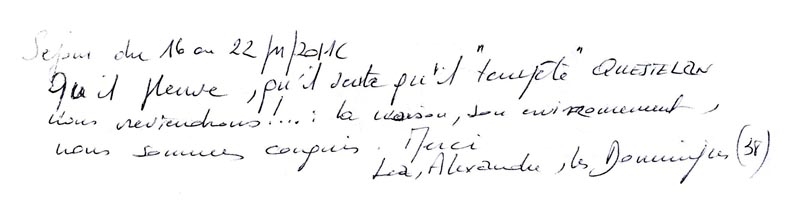 Séjour du 16 au 22/11/2016
Qu'il pleuve, qu'il vente qu'il "tempête" QUESTELAN
nous reviendrons !... : la maison, son environnement,
nous sommes conquis. Merci
Léa, Alexandre, les Domin (38)